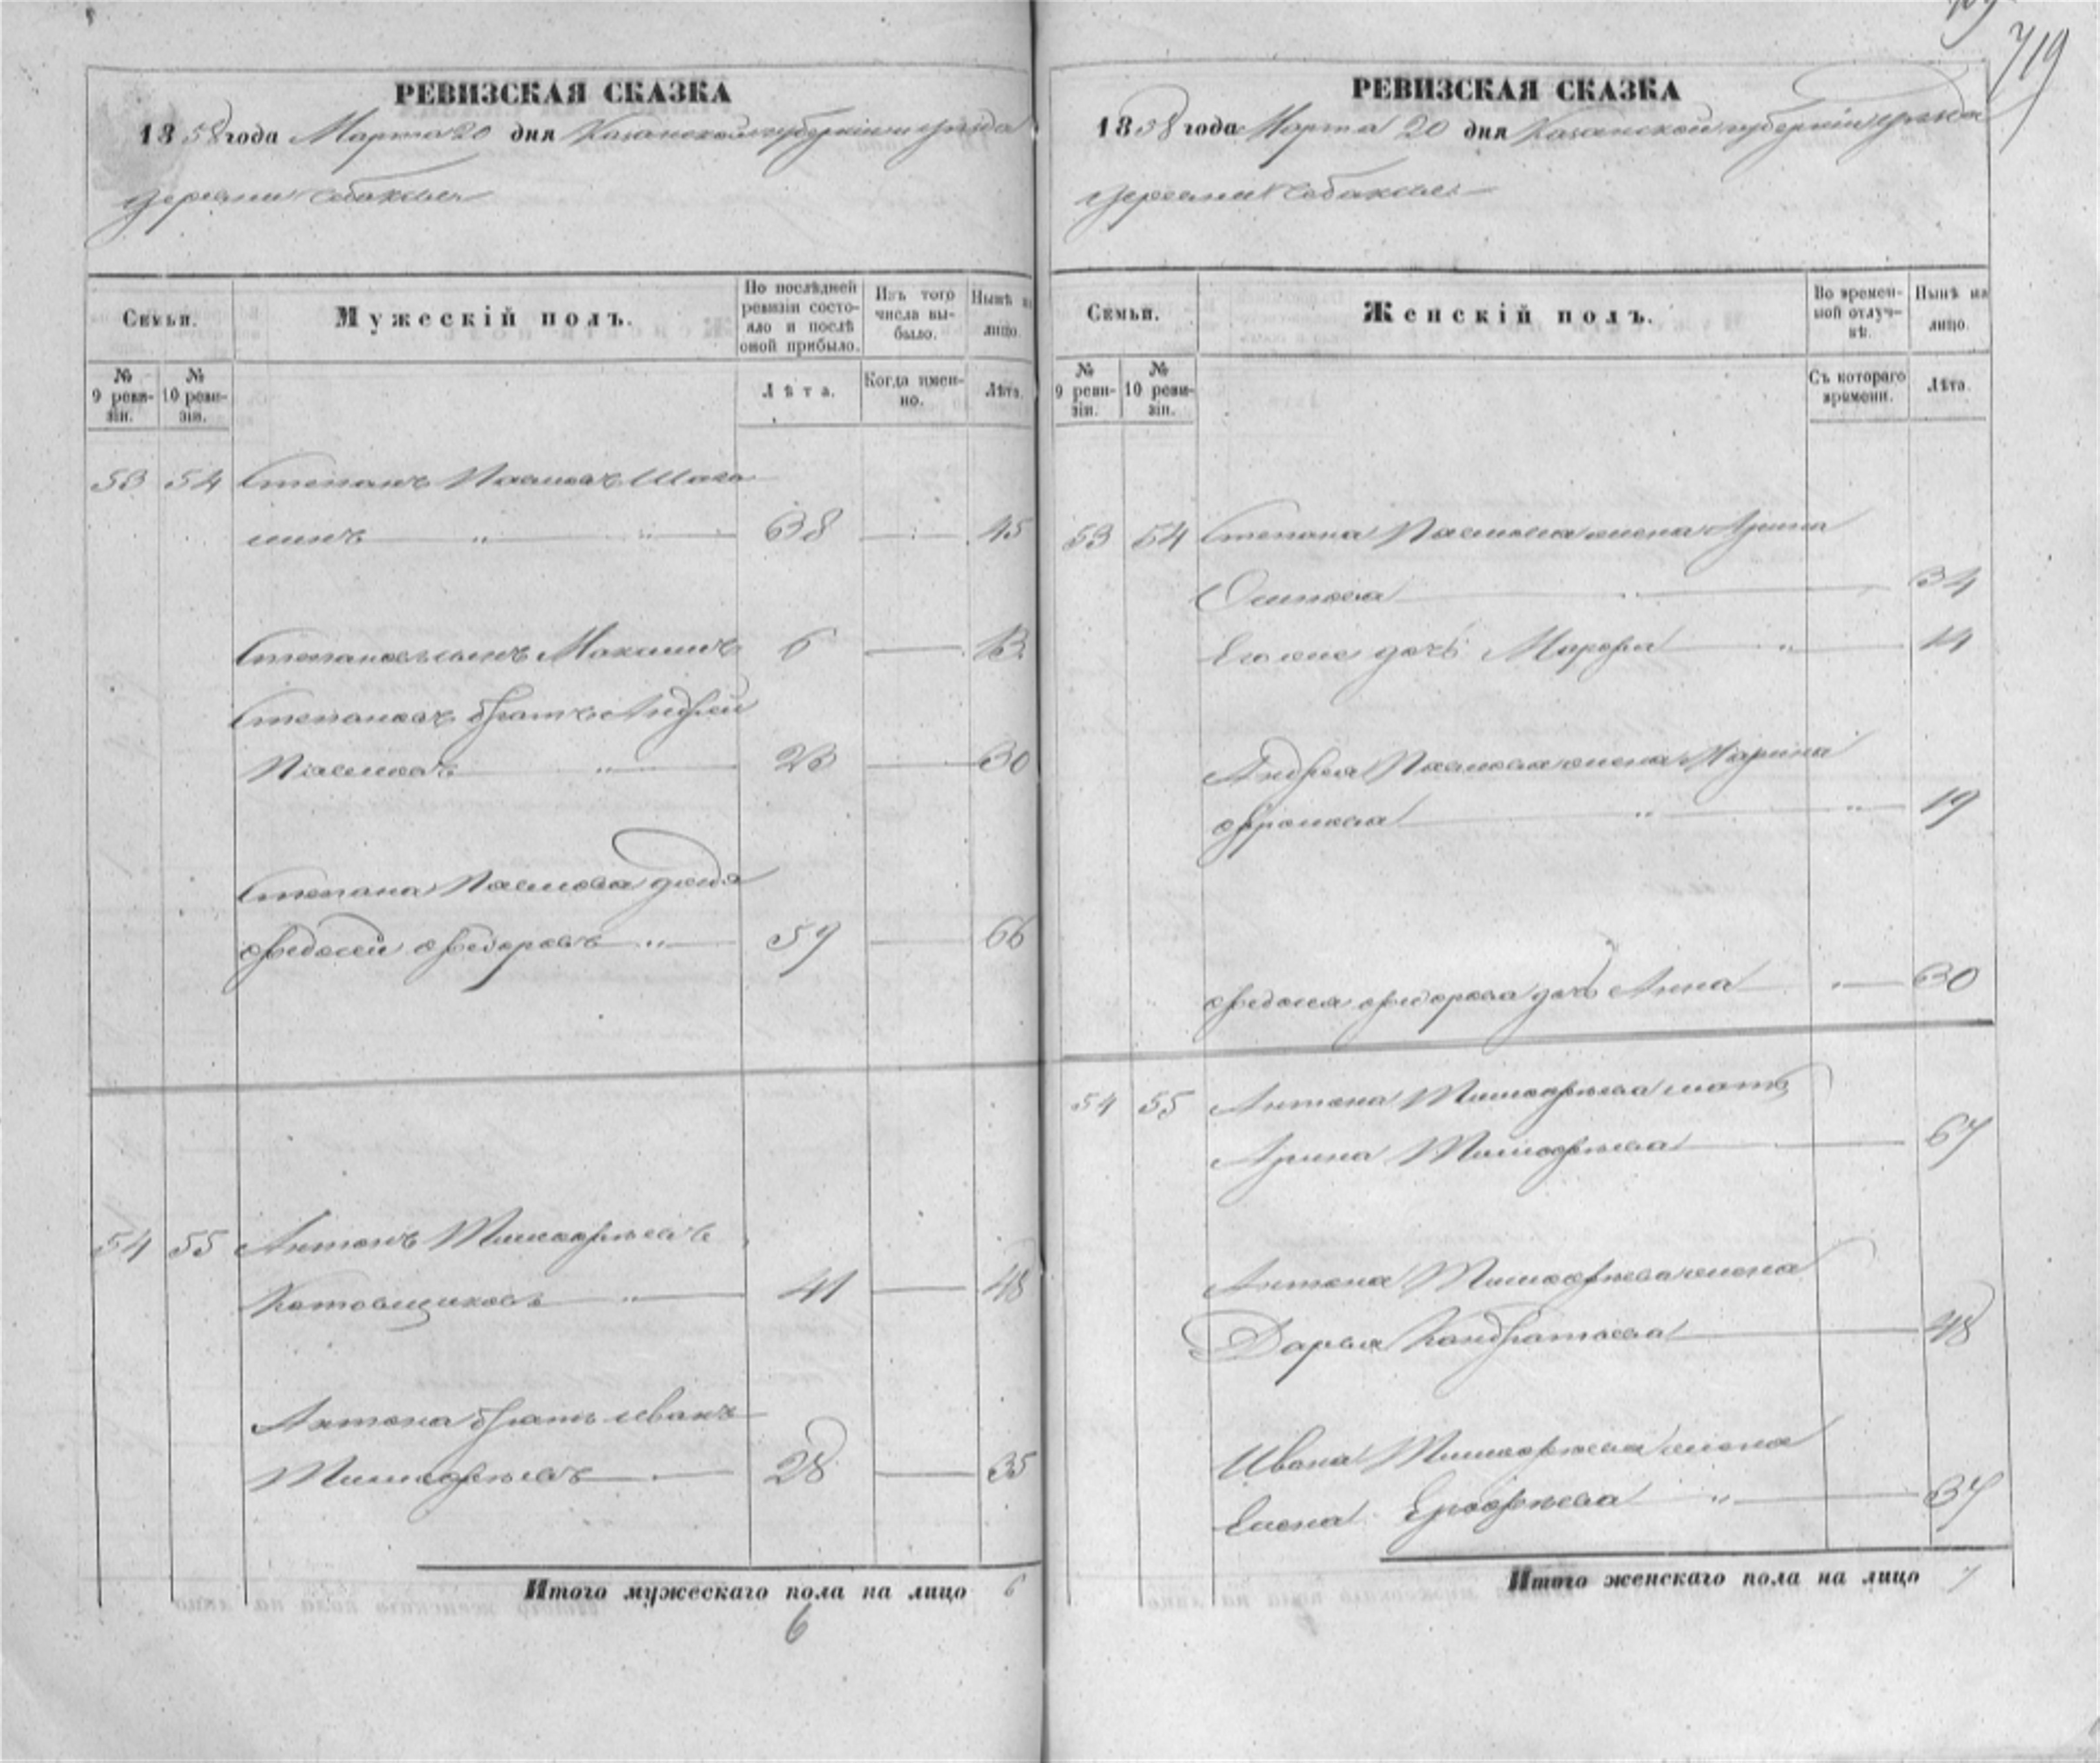 719
РЕВИЗСКАЯ СКАЗКА
1858 года Марта 20 дня Казанской губерніи и уѣзда
деревни Собакиной
Семьи.
Мужескій полъ.
По послѣдней ревизіи состояло и послѣ оной прибыло.
Изъ того числа выбыло.
Нынѣ на лицо.
№ 9 ревизіи.
№ 10 ревизіи.
Лѣта.
Когда именно.
Лѣта.
53 54 Степанъ Павловъ Шага
линъ " " 38 — 45
Степановъ сынъ Максимъ 6 — 13
Степановъ братъ Андрей
Павловъ " 23 — 30
Степана Павлова дядя
Федосей Федоровъ " 59 — 66
54 55 Антонъ Тимофѣевъ
Котовщиковъ " 41 — 48
Антона братъ Иванъ
Тимофѣевъ — 28 — 35
Итого мужескаго пола на лицо 6
6
РЕВИЗСКАЯ СКАЗКА
1858 года Марта 20 дня Казанской губерніи уѣзда
деревни Собакиной
Семьи.
Женскій полъ.
Во временной отлучкѣ.
Нынѣ на лицо.
№ 9 ревизіи.
№ 10 ревизіи.
Съ котораго времени.
Лѣта.
53 54 Степана Павлова жена Арина
Осипова — 34
Его же дочь Марфа " 14
Андрея Павлова жена Марина
Фролова " " 19
Федосея Федорова дочь Анна " 30
54 55 Антона Тимофѣева мать
Арина Тимофѣева — 67
Антона Тимофѣева жена
Дарья Кандратьева — 48
Ивана Тимофѣева жена
Елена Ерофѣева " 37
Итого женскаго пола на лицо 7